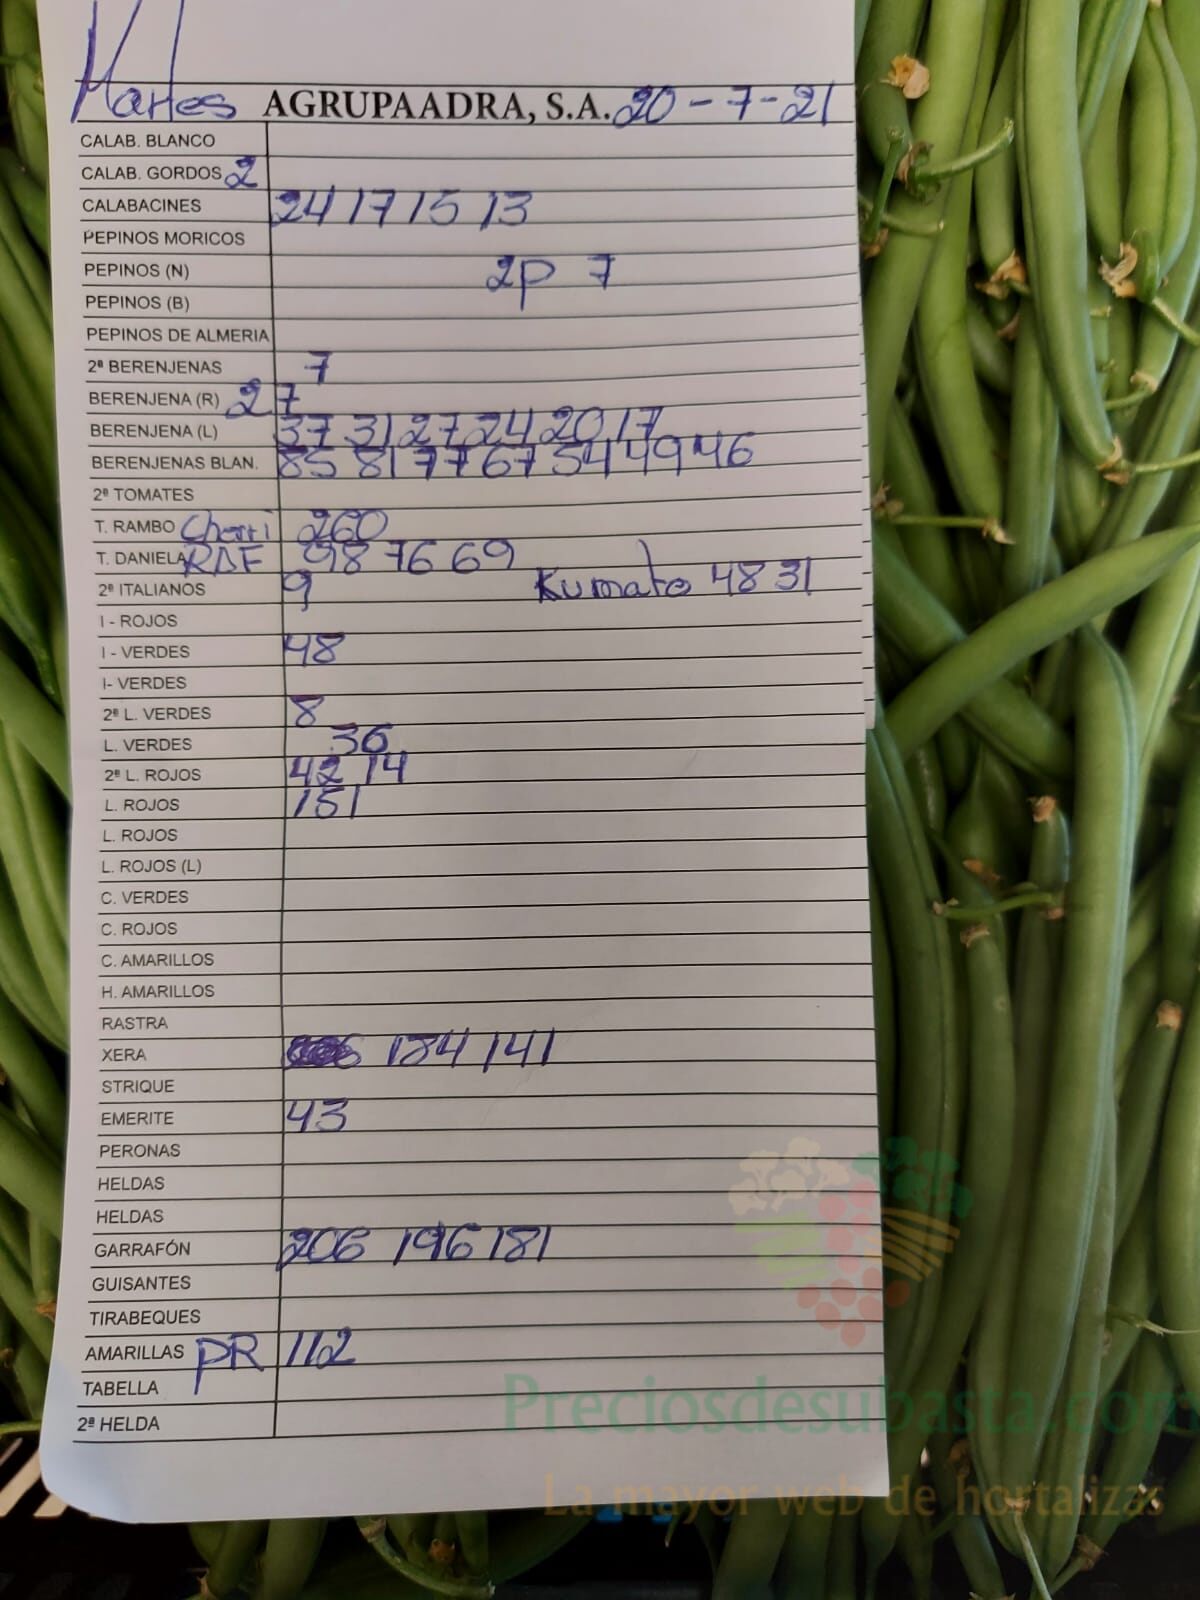 Martes AGRUPAADRA, S.A. 20-7-21
CALAB. BLANCO
CALAB. GORDOS 2
CALABACINES 24 17 15 13
PEPINOS MORICOS
PEPINOS (N) 2P 7
PEPINOS (B)
PEPINOS DE ALMERIA
2ª BERENJENAS 7
BERENJENA (R) 2 7
BERENJENA (L) 37 31 27 24 20 17
BERENJENAS BLAN. 85 81 77 67 54 49 46
2ª TOMATES
T. RAMBO Cherri 260
T. DANIELA RAF 98 76 69
2ª ITALIANOS 9 Kumato 48 31
I - ROJOS
I - VERDES 48
I- VERDES
2ª L. VERDES 8
L. VERDES 36
2ª L. ROJOS 42 14
L. ROJOS 151
L. ROJOS
L. ROJOS (L)
C. VERDES
C. ROJOS
C. AMARILLOS
H. AMARILLOS
RASTRA
XERA 184 141
STRIQUE
EMERITE 43
PERONAS
HELDAS
HELDAS
GARRAFÓN 206 196 181
GUISANTES
TIRABEQUES
AMARILLAS PR 112
TABELLA
2ª HELDA
Preciosdesubasta.com
La mayor web de hortalizas